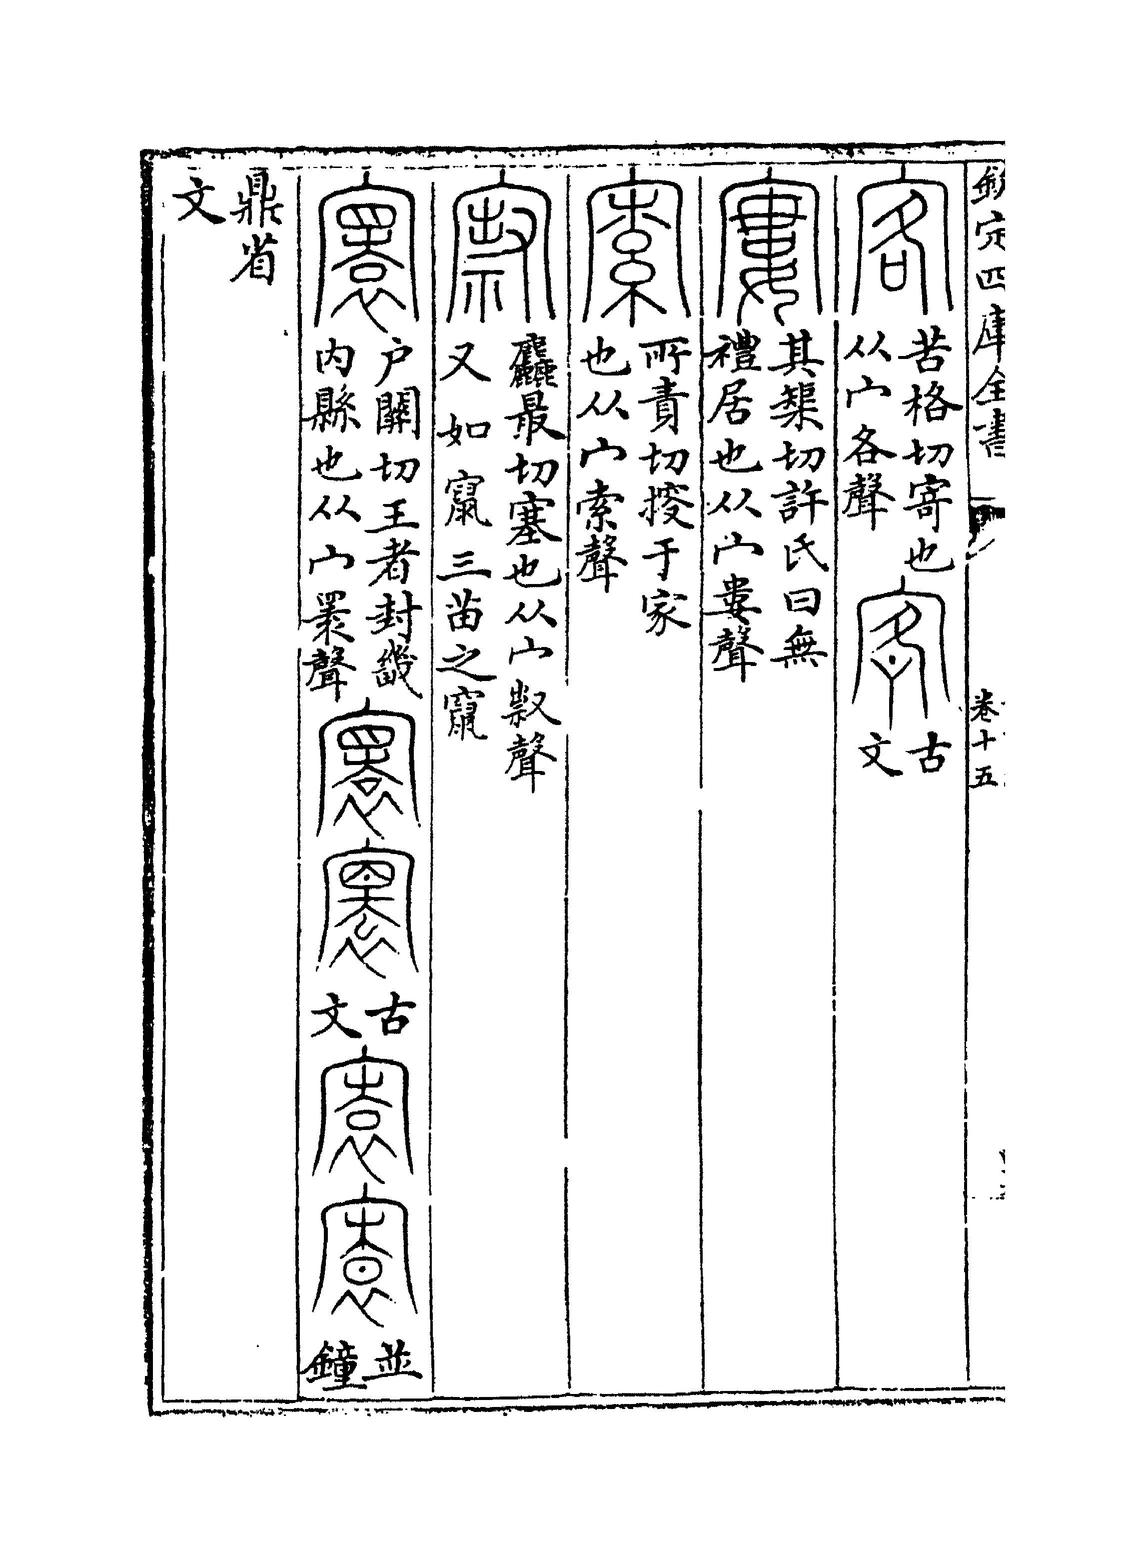 欽定四庫全書
卷十五
客 苦格切寄也
从宀各聲
古
文
寠 其榘切許氏曰無
禮居也从宀婁聲
𡩡 所責切搜于家
也从宀索聲
麤最切塞也从宀㕞聲
又如竄三苗之竄
寰 户關切王者封畿
内縣也从宀睘聲
古
文
並
鐘
鼎省
文